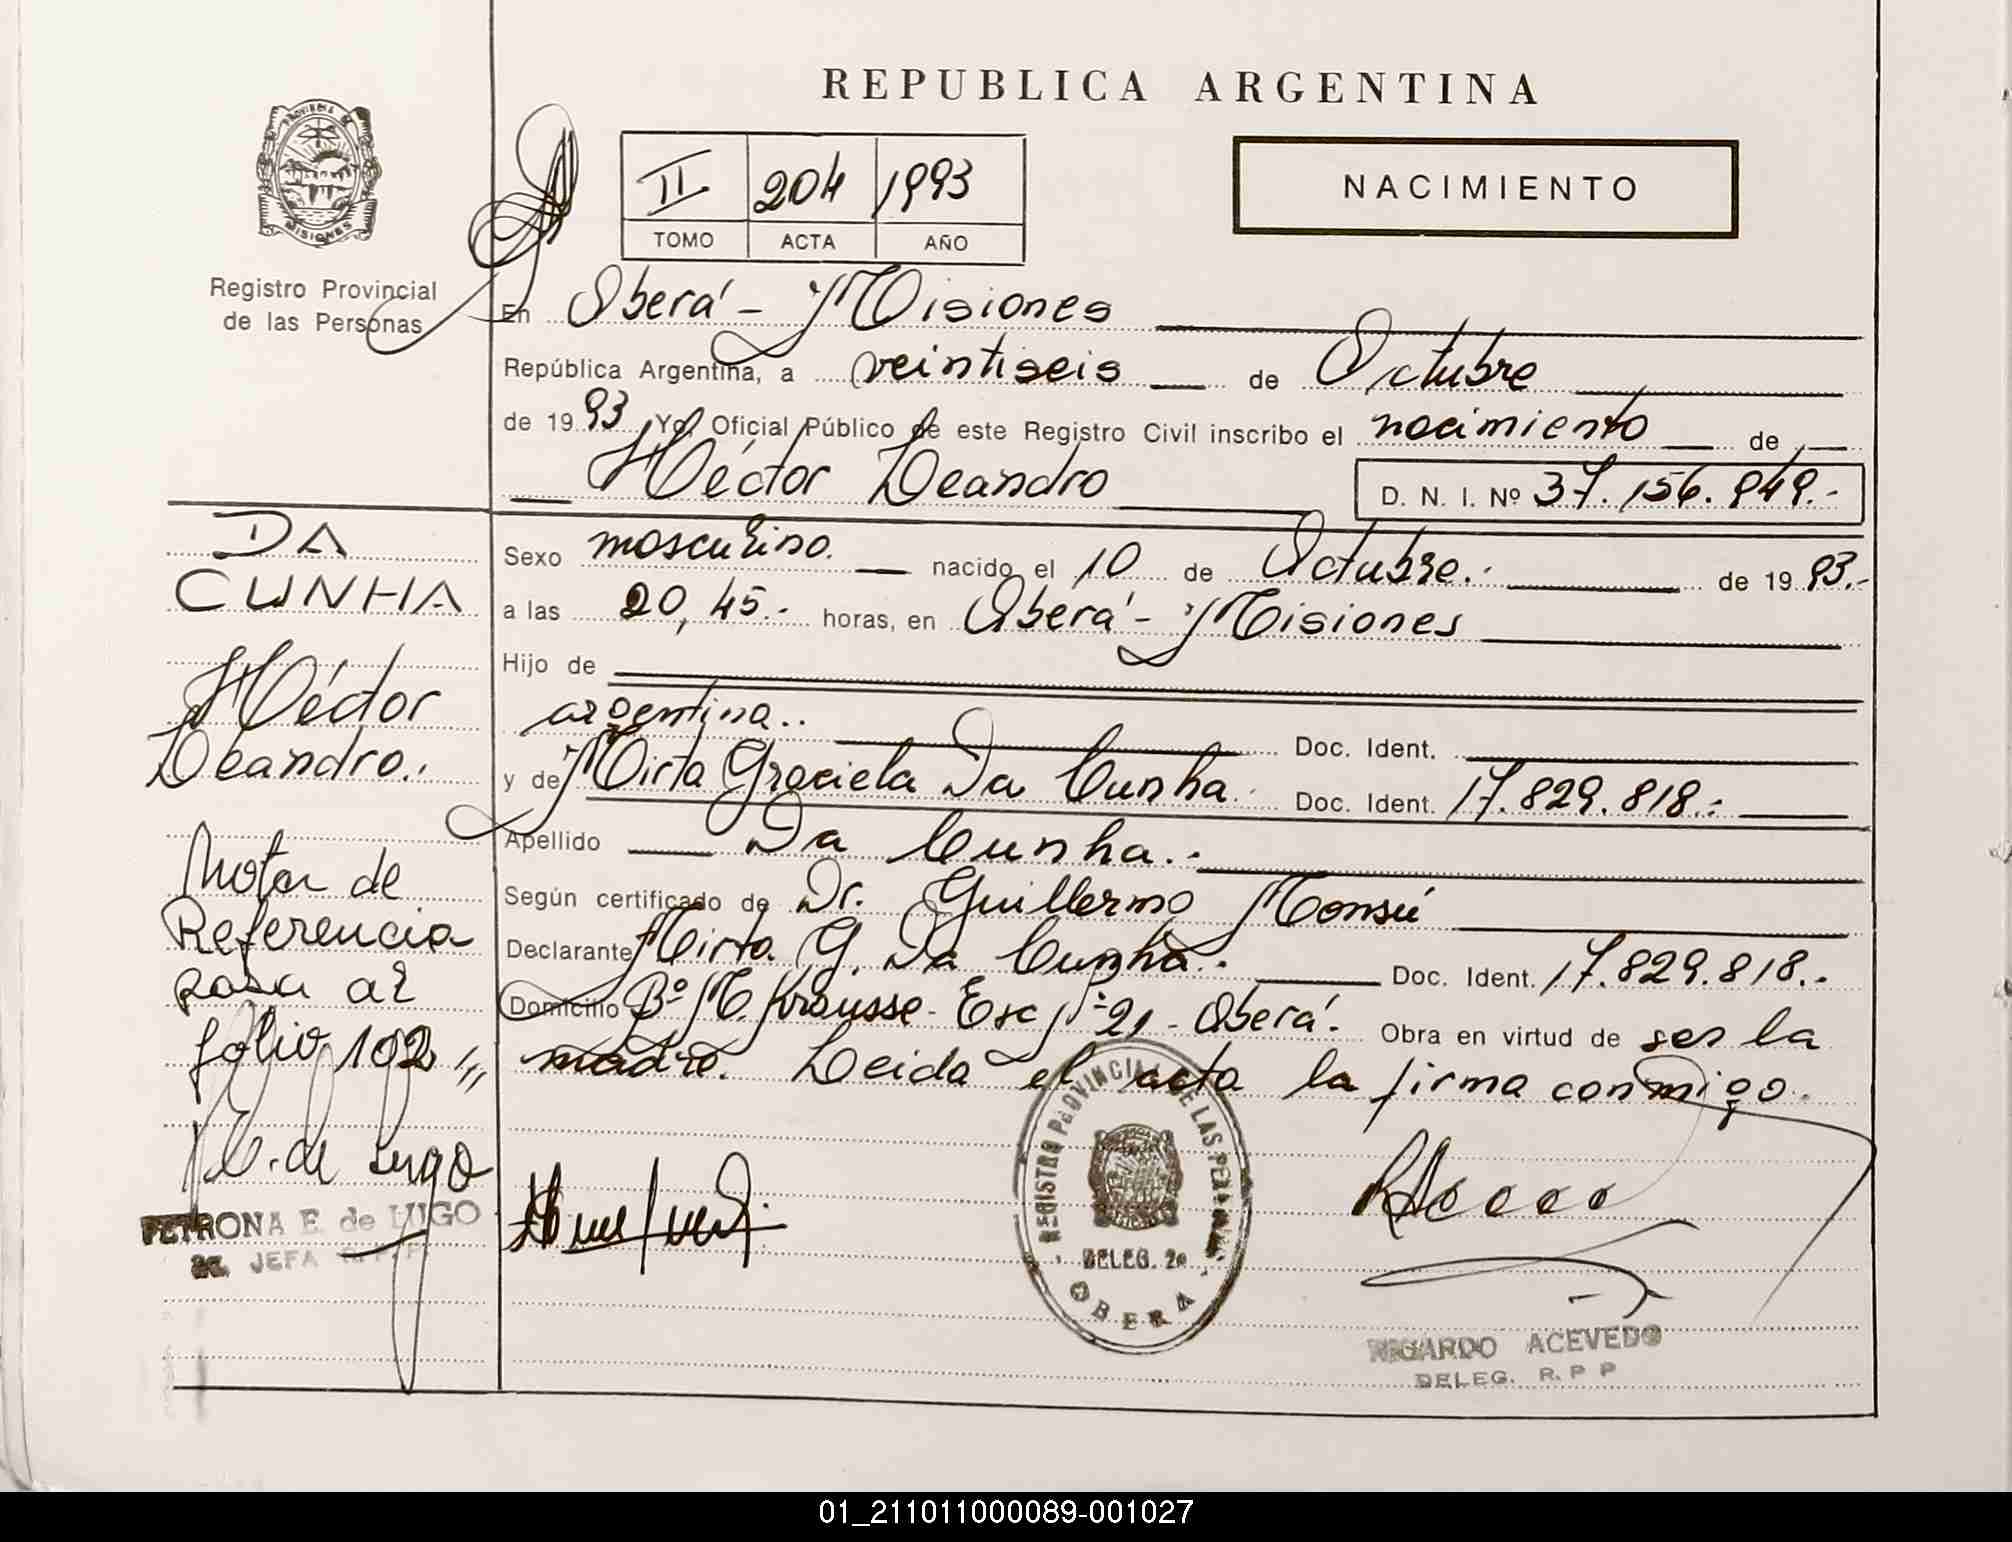 REPUBLICA ARGENTINA
PROVINCIA DE
MISIONES
Registro Provincial
de las Personas
II 204 1993
TOMO ACTA AÑO
NACIMIENTO
En Oberá - Misiones
República Argentina, a veintiseis de Octubre
de 1993 Yo, Oficial Público de este Registro Civil inscribo el nacimiento de
Héctor Leandro D. N. I. Nº 37.156.949.-
DA
CUNHA
Héctor
Leandro.
Sexo masculino. nacido el 10 de Octubre.- de 1993.-
a las 20,45.- horas, en Oberá - Misiones
Hijo de
argentina.. Doc. Ident.
y de Mirta Graciela Da Cunha. Doc. Ident. 17.829.818.-
Apellido Da Cunha.-
Según certificado de Dr. Guillermo Monsú
Declarante Mirta G. Da Cunha.- Doc. Ident. 17.829.818.-
Domicilio Bº M. Krausse - Esc Nº 21 - Oberá. Obra en virtud de ser la
madre. Leida el acta la firma conmigo.
Nota de
Referencia
pasa al
folio 102
P. E. de Lugo
PETRONA E. de LUGO
2a. JEFA R.P.P.
REGISTRO PROVINCIAL DE LAS PERSONAS
DELEG. 2a
OBERA
RICARDO ACEVEDO
DELEG. R. P P
01_211011000089-001027